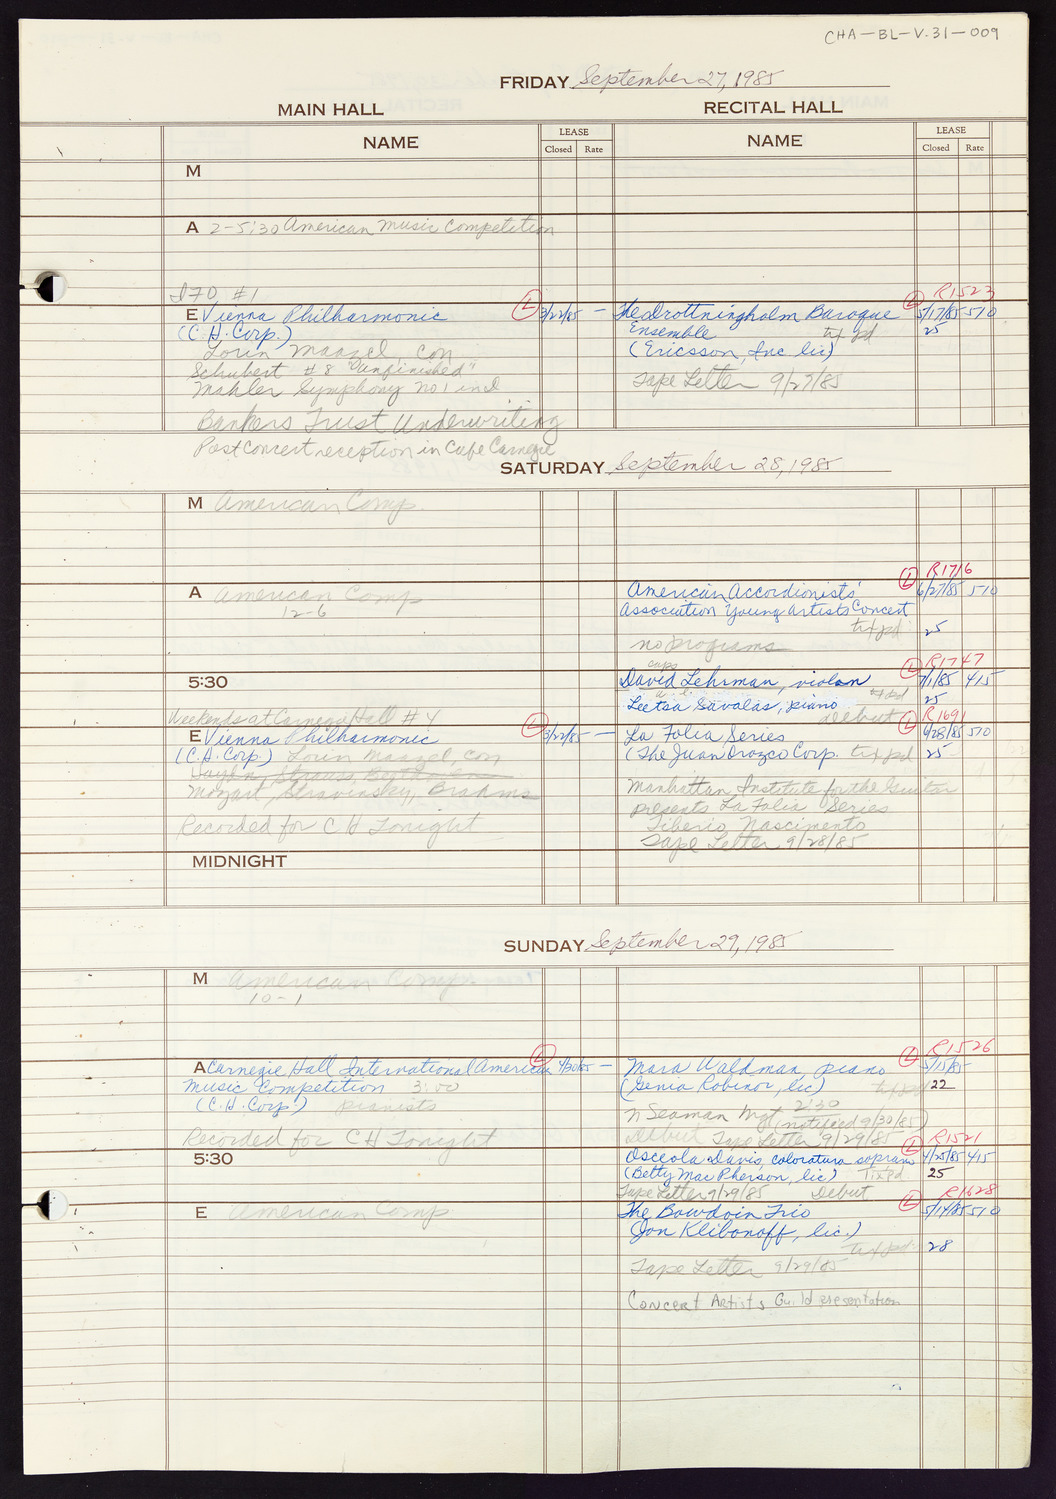 CHA-BL-V.31-009
FRIDAY September 27, 1985
MAIN HALL
RECITAL HALL
NAME
LEASE
Closed Rate
NAME
LEASE
Closed Rate
M
A 2-5:30 American Music Competition
I70 #1
E Vienna Philharmonic L 3/22/85 —
(C.H. Corp.)
Lorin Maazel, con
Schubert #8 "Unfinished"
Mahler Symphony No 1 in d
Bankers Trust Underwriting
Post concert reception in Cafe Carnegie
L R1523
The Drottningholm Baroque 5/17/85 510
Ensemble tix pd 25
(Ericsson, Inc lic)
Tape Letter 9/27/85
SATURDAY September 28, 1985
M American Comp.
A American Comp
12-6
L R1716
American Accordionists' 6/27/85 510
Association Young Artists Concert
tix pd 25
no programs
5:30
L R1747
caps
David Lehrman, violon 7/1/85 415
tix pd 25
Leetsa Savalas, piano
Debut
Weekends at Carnegie Hall #4
E Vienna Philharmonic L 3/22/85 —
(C.H. Corp.) Lorin Maazel, con
Haydn, Strauss, Beethoven
Mozart, Stravinsky, Brahms
Recorded for C H Tonight
L R1691
La Folia Series 6/28/85 510
(The Juan Orozco Corp. tix pd 25
Manhattan Institute for the Guitar
presents La Folia Series
Tiberio Nascimento
Tape Letter 9/28/85
MIDNIGHT
SUNDAY September 29, 1985
M American Comp.
10-1
A Carnegie Hall International American L 4/30/85 —
Music Competition 3:00
(C.H. Corp.) pianists
Recorded for C H Tonight
L R1526
Mara Waldman, piano 5/15/85
(Genia Robinor, lic) tix pd 22
N Seaman Mgt 2:30
(notified 9/30/85)
Debut Tape Letter 9/29/85
5:30
L R1521
Osceola Davis, coloratura soprano 4/25/85 415
(Betty MacPherson, lic) Tix pd 25
Tape Letter 9/29/85 Debut
E American Comp
L R1628
The Bowdoin Trio 5/14/85 510
(Jon Klibonoff, lic.)
tix pd 28
Tape Letter 9/29/85
Concert Artists Guild presentation